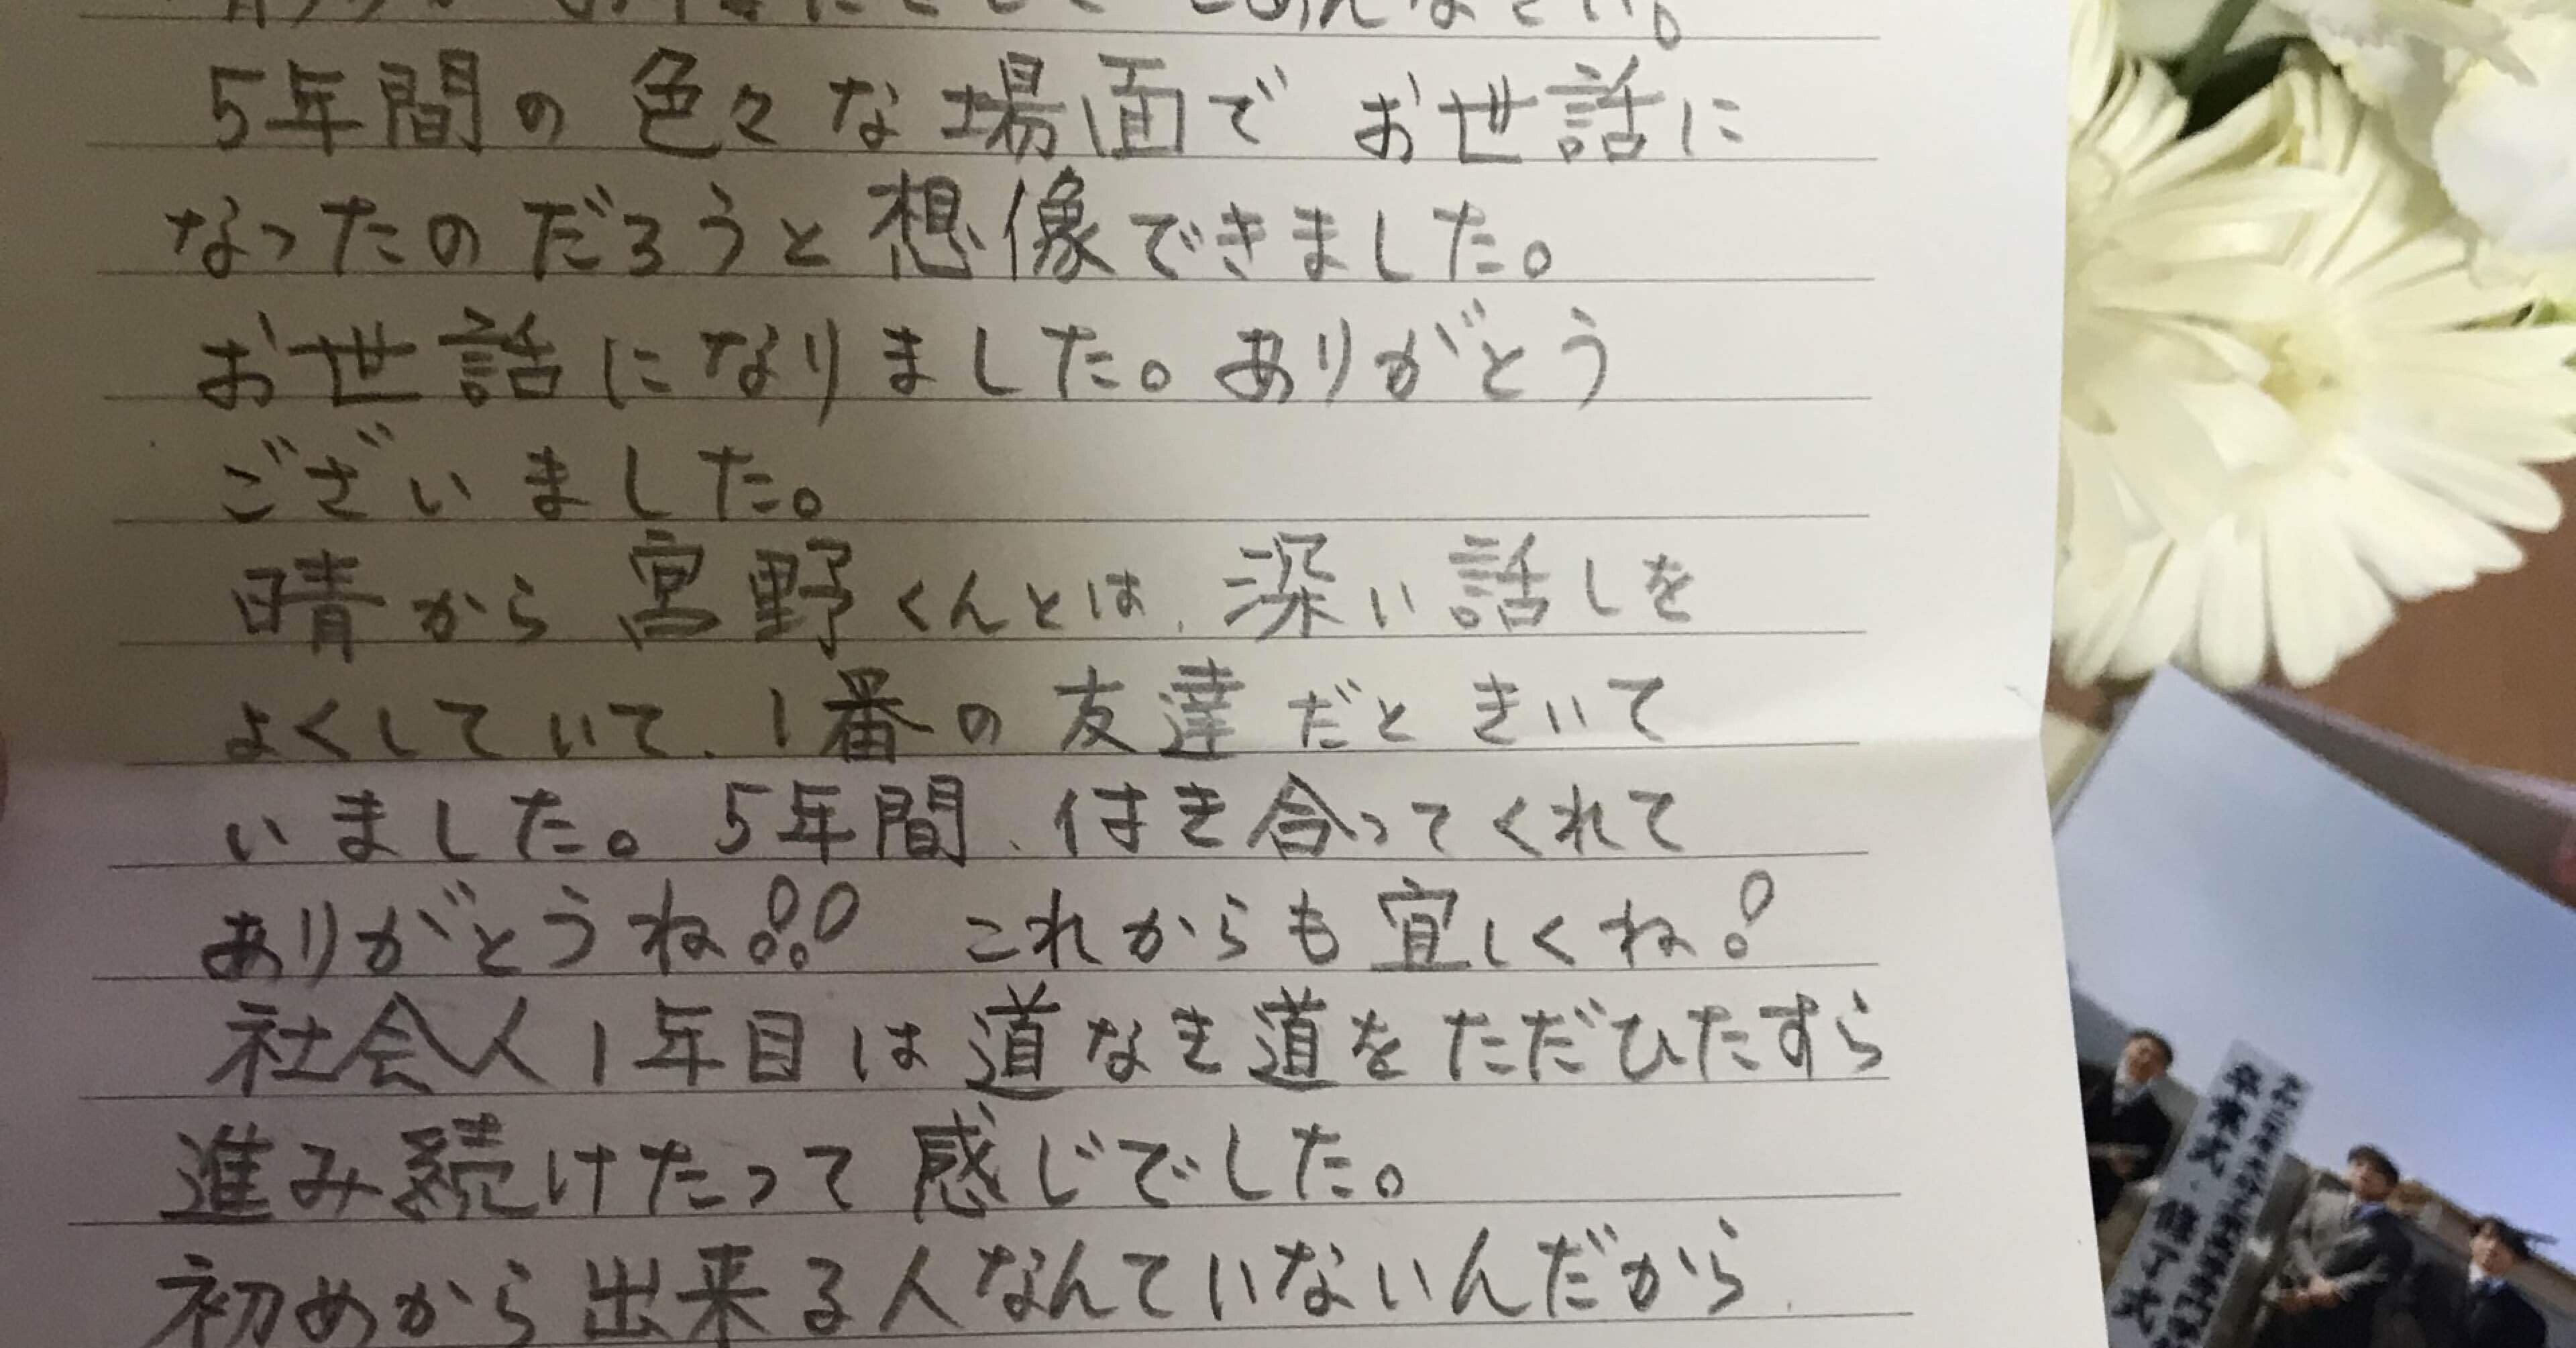 ごめんなさい。
5年間の色々な場面でお世話に
なったのだろうと想像できました。
お世話になりました。ありがとう
ございました。
晴から宮野くんとは、深い話しを
よくしていて、1番の友達だときいて
いました。5年間、付き合ってくれて
ありがとうね!! これからも宜しくね!
社会人1年目は道なき道をただひたすら
進み続けたって感じでした。
初めから出来る人なんていないんだから、
卒業式・修了式